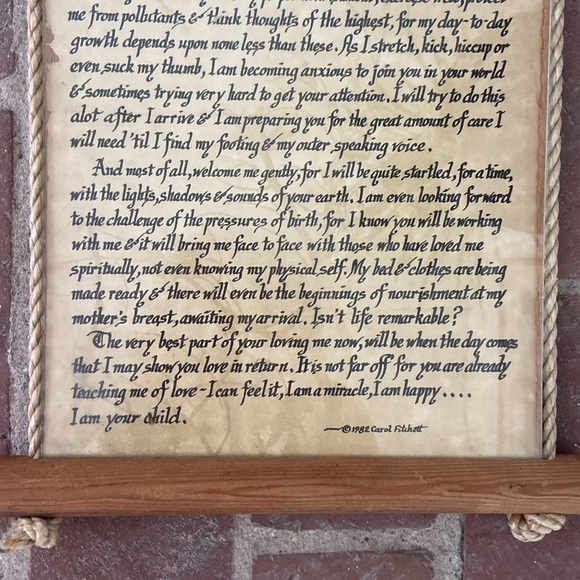 me from pollutants & think thoughts of the highest, for my day-to-day
growth depends upon none less than these. As I stretch, kick, hiccup or
even suck my thumb, I am becoming anxious to join you in your world
& sometimes trying very hard to get your attention. I will try to do this
alot after I arrive & I am preparing you for the great amount of care I
will need 'til I find my footing & my outer speaking voice.
And most of all, welcome me gently, for I will be quite startled, for a time,
with the lights, shadows & sounds of your earth. I am even looking forward
to the challenge of the pressures of birth, for I know you will be working
with me & it will bring me face to face with those who have loved me
spiritually, not even knowing my physical self. My bed & clothes are being
made ready & there will even be the beginnings of nourishment at my
mother's breast, awaiting my arrival. Isn't life remarkable?
The very best part of your loving me now, will be when the day comes
that I may show you love in return. It is not far off for you are already
teaching me of love - I can feel it, I am a miracle, I am happy....
I am your child.
—©1982 Carol Fitchett